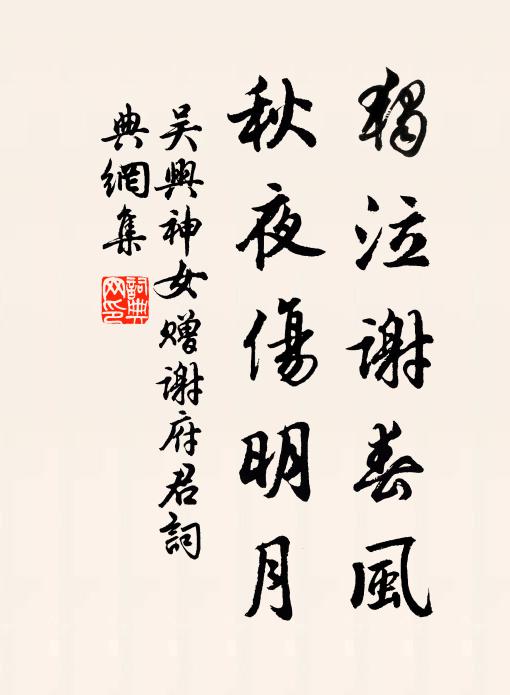 獨泣謝春風
秋夜傷明月
吳興神女贈謝府君詞
典網集
詞典
网印